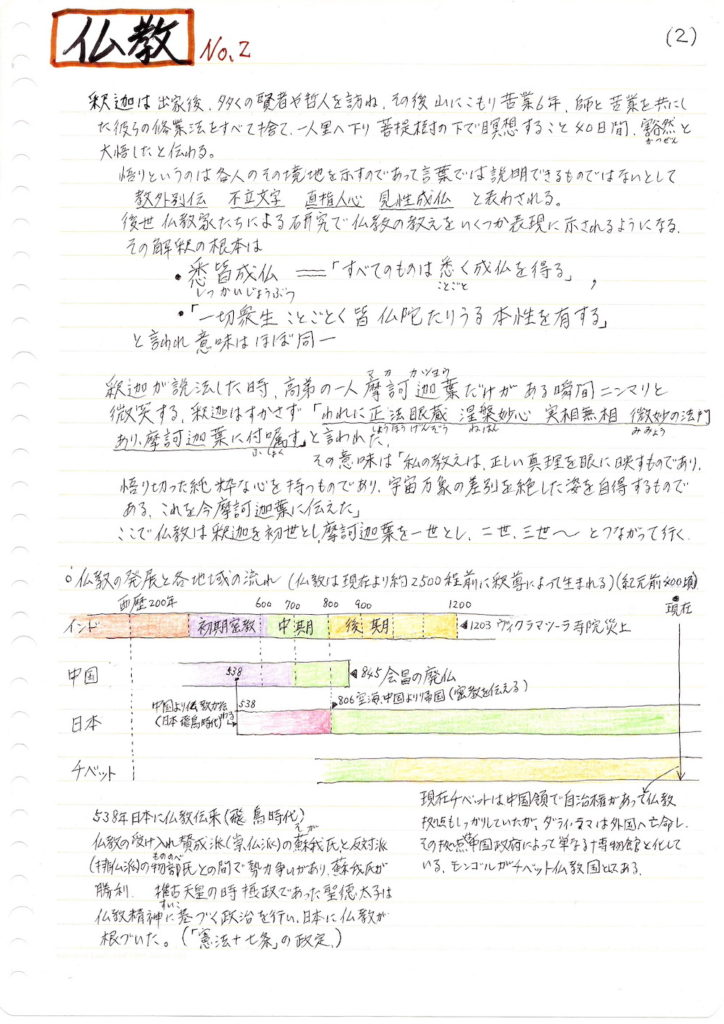 仏教 No.2
(2)
釈迦は出家後、多くの賢者や哲人を訪ね、その後山にこもり苦業6年、師と苦業を共にし
た彼らの修業法をすべて捨て、一人里へ下り菩提樹の下で瞑想すること40日間、豁然と
かつぜん
大悟したと伝わる。
悟りというのは各人のその境地を示すのであって言葉では説明できるものではないとして
教外別伝 不立文字 直指人心 見性成仏 と表わされる。
後世仏教家たちによる研究で仏教の教えをいくつか表現に示されるようになる。
その解釈の根本は
・悉皆成仏 ＝「すべてのものは悉く成仏を得る」,
しつかいじょうぶつ ことごと
・「一切衆生ことごとく皆仏陀たりうる本性を有する」
と言われ意味はほぼ同一
釈迦が説法した時、高弟の一人摩訶迦葉だけがある瞬間ニンマリと
マカカショウ
微笑する、釈迦はすかさず「われに正法眼蔵 涅槃妙心 実相無相 微妙の法門
しょうほうげんぞう ねはん みみょう
あり、摩訶迦葉に付嘱す」と言われた、
ふしょく
その意味は「私の教えは、正しい真理を眼に映すものであり、
悟り切った純粋な心を持つものであり、宇宙万象の差別を絶した姿を自得するもので
ある、これを今摩訶迦葉に伝えた」
ここで仏教は釈迦を初世とし、摩訶迦葉を一世とし、二世、三世〜とつながって行く、
○仏教の発展と各地域の流れ (仏教は現在より約2500程前に釈尊によって生まれる)(紀元前500頃)
西歴200年 600 700 800 900 1200 現在
インド 初期密教 中期 後期 1203 ヴィクラマシーラ寺院炎上
中国 538 845 会昌の廃仏
806 空海、中国より帰国 (密教を伝える)
中国より仏教伝わる
(日本 飛鳥時代)
538
日本
チベット
538年日本に仏教伝来(飛鳥時代)
仏教の受け入れ賛成派(崇仏派)の蘇我氏と反対派
そが
(排仏派)の物部氏との間で勢力争いがあり、蘇我氏が
もののべ
勝利. 推古天皇の時摂政であった聖徳太子は
すいこ
仏教精神に基づく政治を行い、日本に仏教が
根づいた。(「憲法十七条」の政定、)
現在チベットは中国領で自治権があって仏教
拠点もしっかりしていたが、ダライ・ラマは外国へ亡命し、
その拠点中国政府によって単なる博物館と化して
いる、モンゴルがチベット仏教国とである、